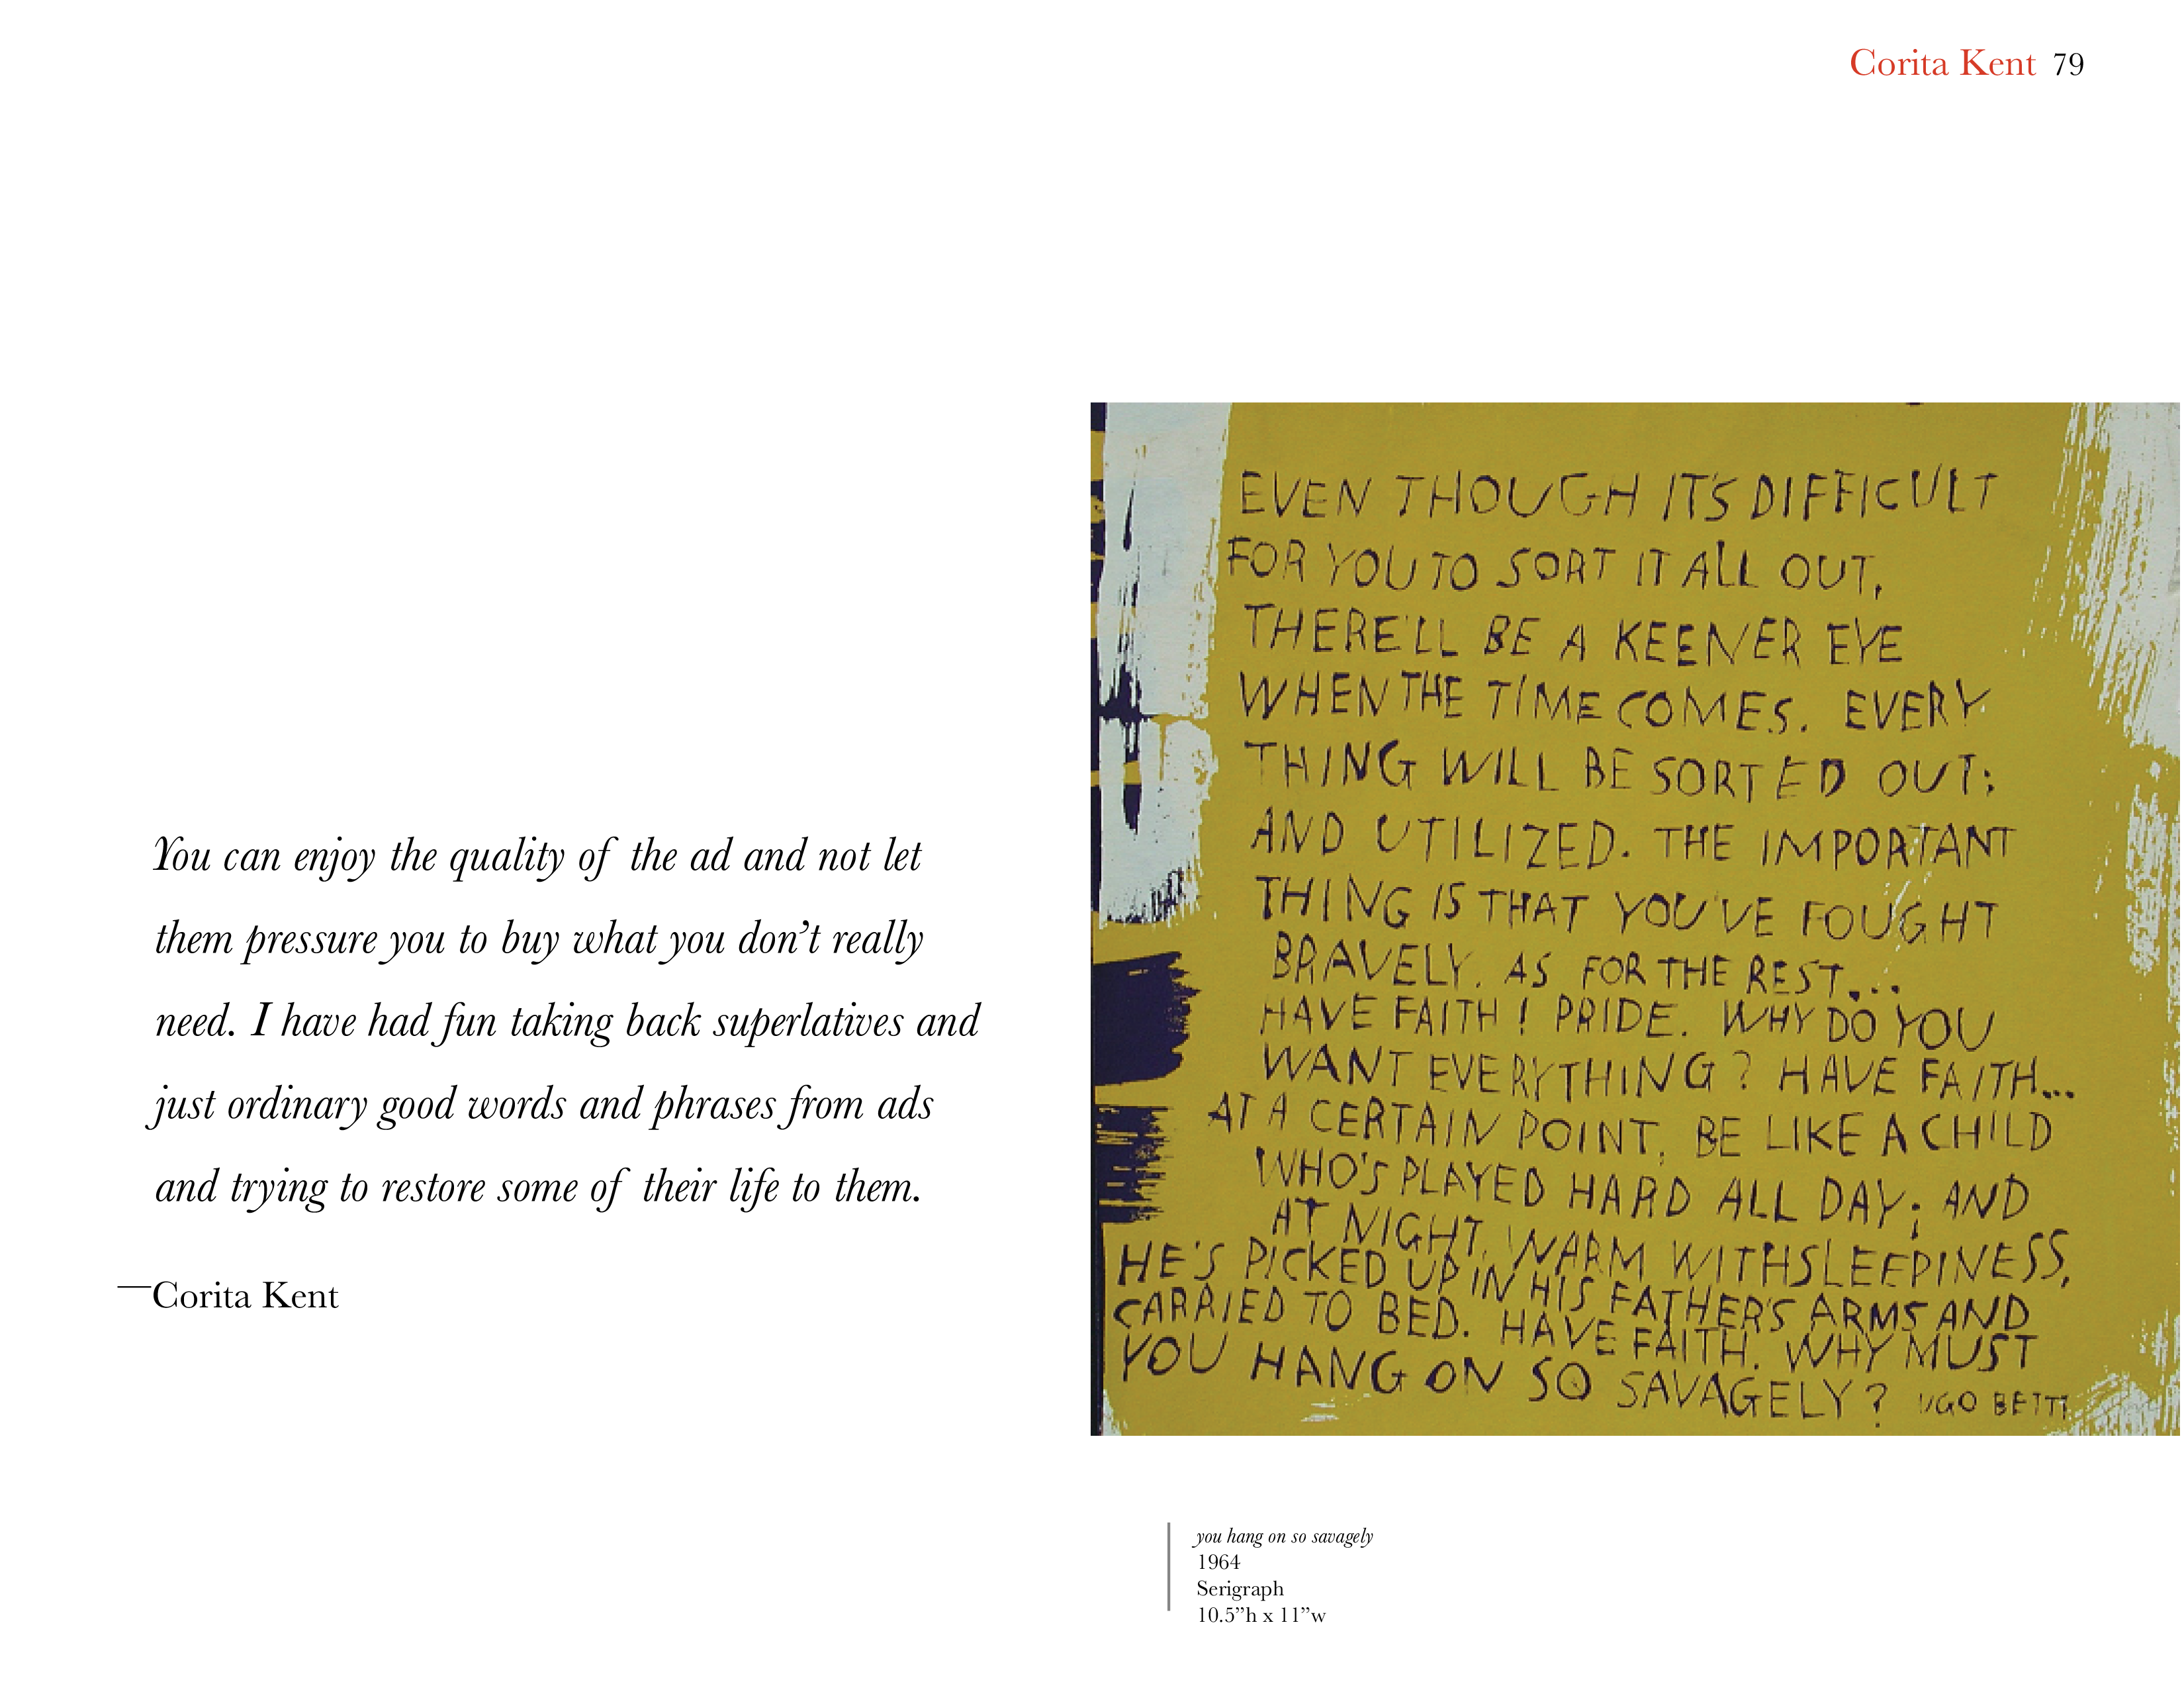 Corita Kent 79
You can enjoy the quality of the ad and not let
them pressure you to buy what you don’t really
need. I have had fun taking back superlatives and
just ordinary good words and phrases from ads
and trying to restore some of their life to them.
—Corita Kent
EVEN THOUGH IT'S DIFFICULT
FOR YOU TO SORT IT ALL OUT,
THERE'LL BE A KEENER EYE
WHEN THE TIME COMES. EVERY
THING WILL BE SORTED OUT;
AND UTILIZED. THE IMPORTANT
THING IS THAT YOU'VE FOUGHT
BRAVELY. AS FOR THE REST...
HAVE FAITH! PRIDE. WHY DO YOU
WANT EVERYTHING? HAVE FAITH...
AT A CERTAIN POINT, BE LIKE A CHILD
WHO'S PLAYED HARD ALL DAY; AND
AT NIGHT, WARM WITH SLEEPINESS,
HE'S PICKED UP IN HIS FATHER'S ARMS AND
CARRIED TO BED. HAVE FAITH. WHY MUST
YOU HANG ON SO SAVAGELY? UGO BETTI
you hang on so savagely
1964
Serigraph
10.5”h x 11”w